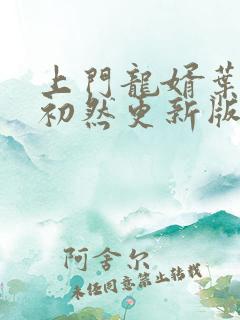 上門龍婿葉
初然更新版
阿舍尔
未经同意禁止转载